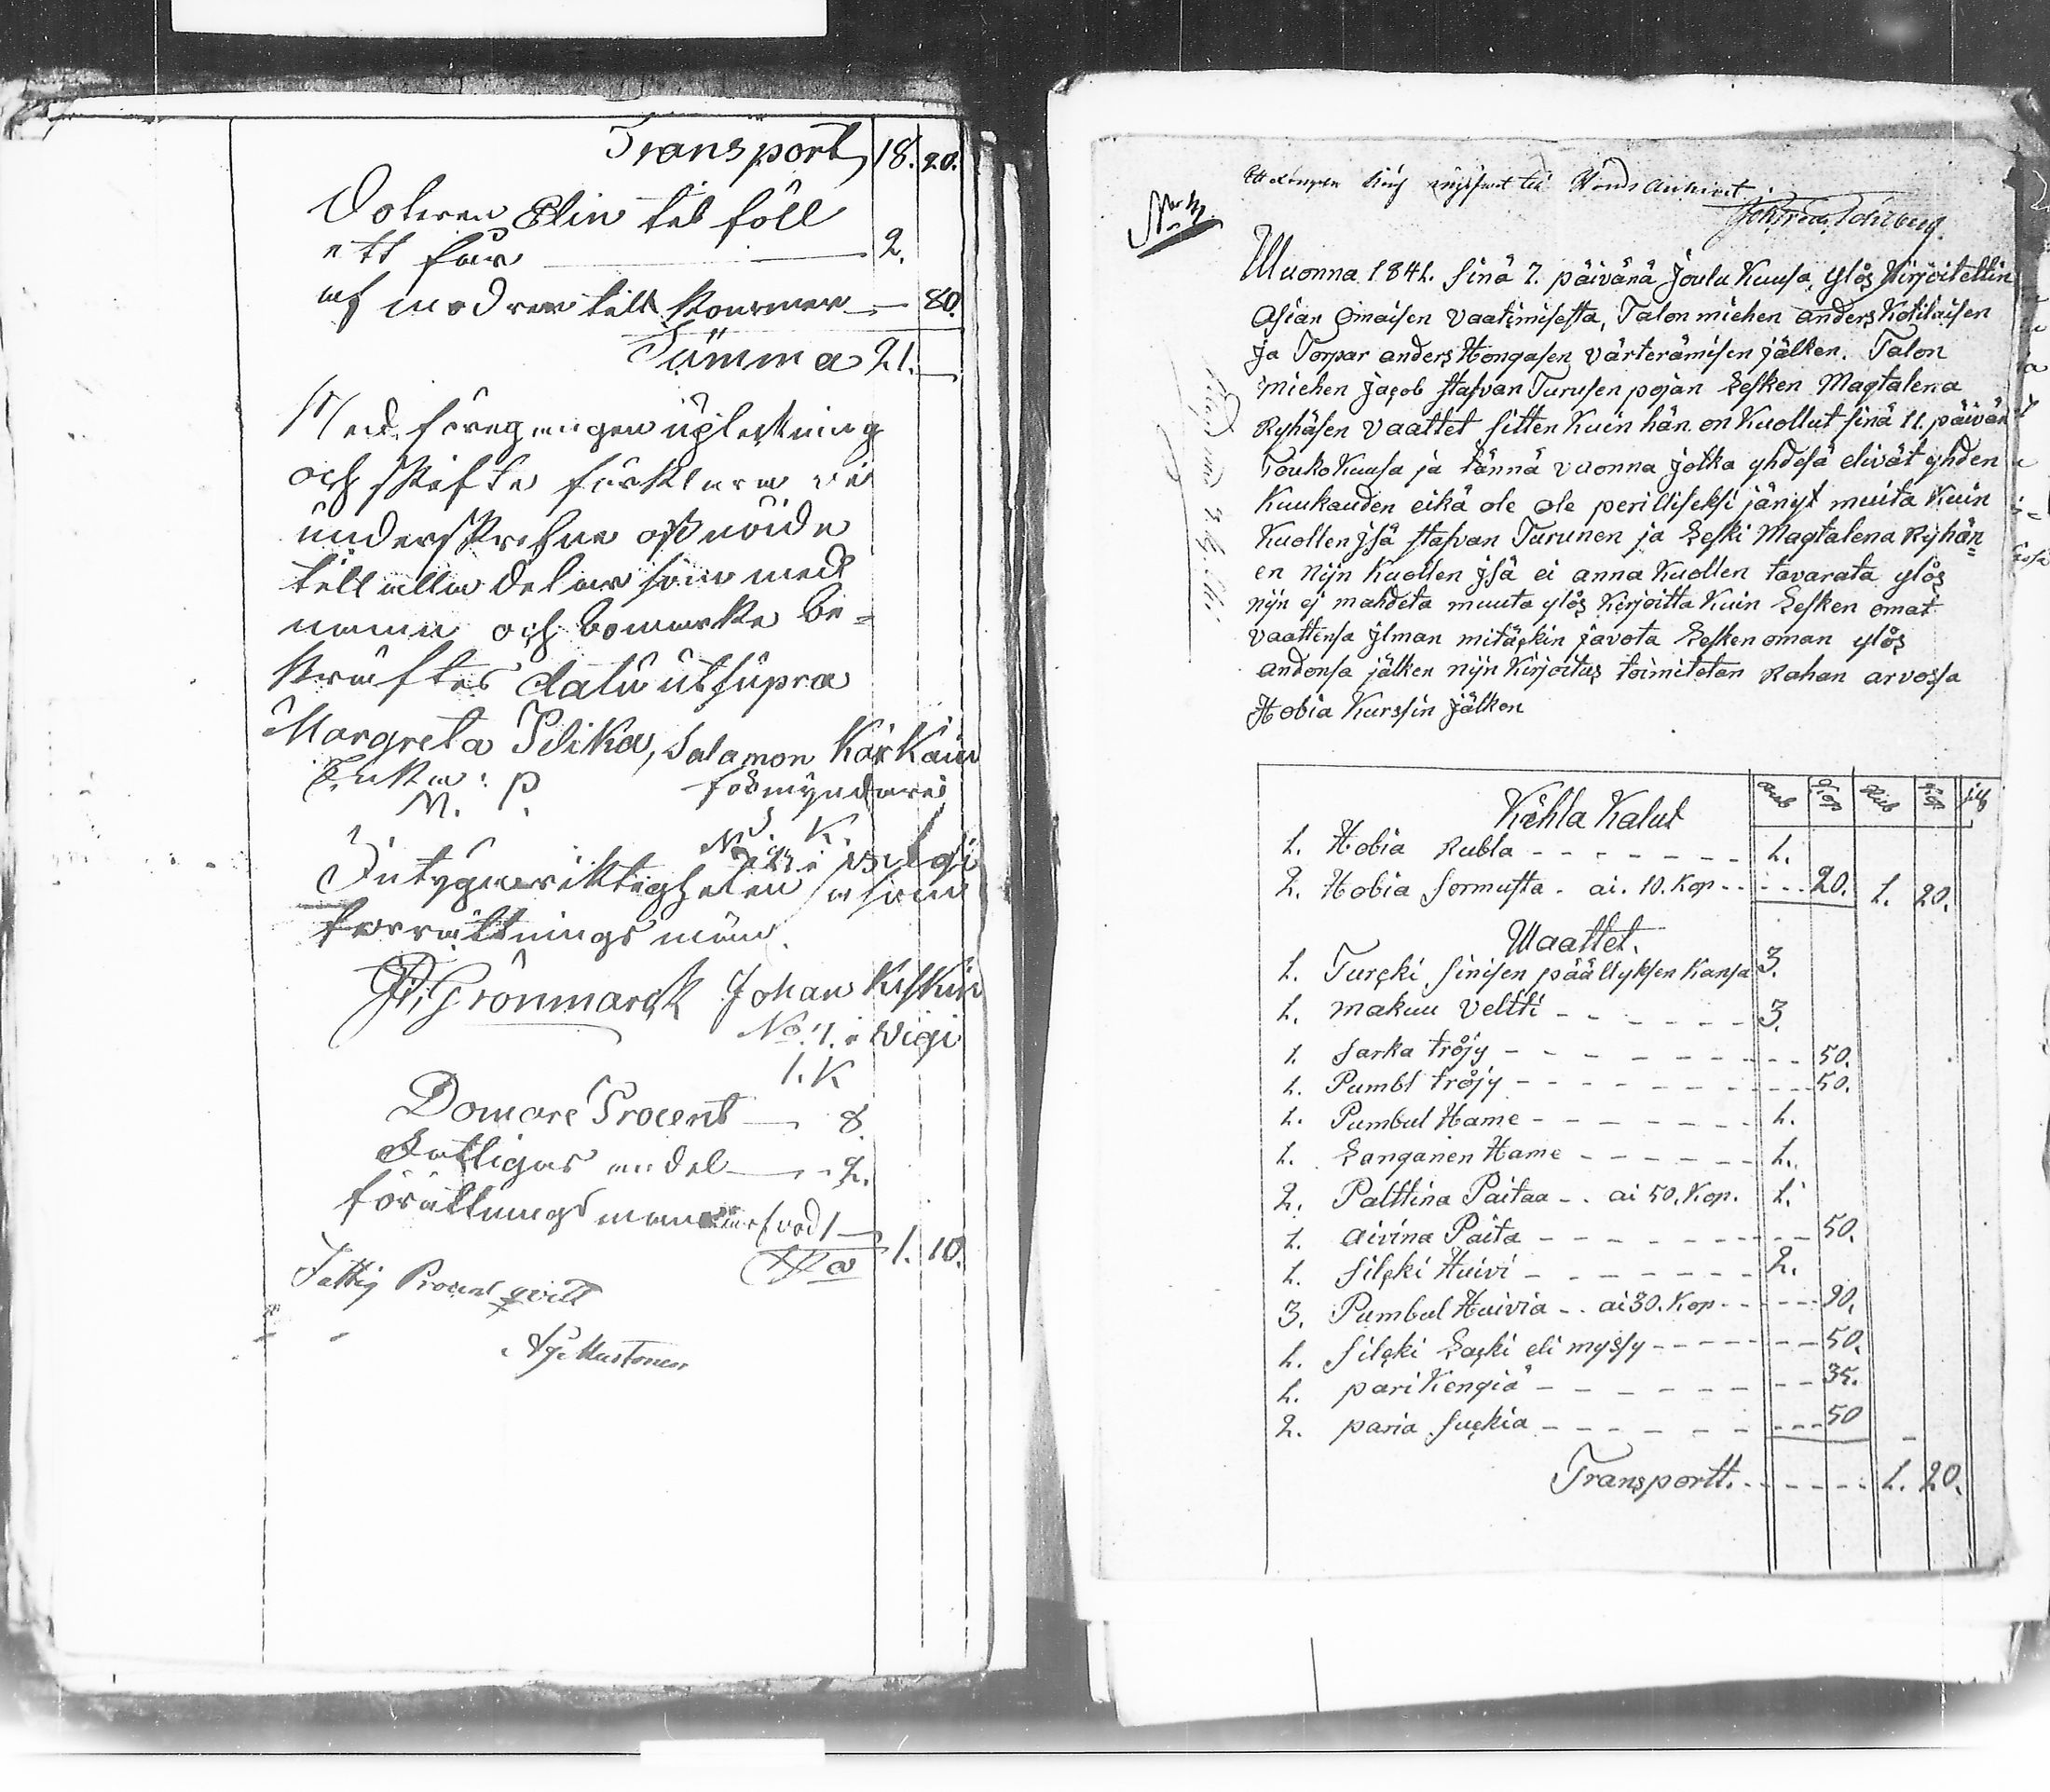 Transport 18. 20.
Dotren Elin till föll
ett får 2.
af modren till kommer 80.
Summa 21.
Med föregången upteckning
och skifte förklara vi
underskrefne oss nöide
till alla delar som med
namn och bomerke be=
kräftes datu utsupra
Margreta Pilika, Salamon Kärkäin
Enka: P förmyndare
M.
Intygar riktigheten som
forrättnings män
Grönmarck Johan Kiskin
No 4. i Wigi
1. K
Domare Procent 8.
Fattigas andel 2.
förättnings mannen arfvod 1
Sa 1. 10.
Fattig Procent qvitt
Mustonen
Uuonna 1841. sinä 7. päivänä Joulu Kuusa, Ylös Kirjoitettin
Asian Omaisen vaatimisesta, Talon miehen anders Kotilaisen
ja Torpar anders Hongasen värterämisen jälken. Talon
miehen Jacob stafvan Turusen pojan Lesken Magtalena
Ryhäsen vaattet sitten Kuin hän on Kuollut sinä 11. päivän
Touko Kuusa ja tännä vuonna jotka yhdesä elivät yhden
Kuukauden eikä ole ole perilliseksi jänyt muita Kuin
Kuollen jsä stafvan Turunen ja Leski Magtalena Ryhän=
en Nijn Kuollen jsä ei anna Kuollen tavarata ylös
nijn ej mahdeta muuta ylös Kirjoitta Kuin Lesken omat
vaattensa jlman mitäckin javota Lesken oman ylös
andonsa jälken nijn Kirjoitus toimitetan Rahan arvossa
Hobia Kurssin Jälken
Kihla Kalut Rub Kop Rub Kop
1. Hobia Rubla 1.
2. Hobia Sormusta ai. 10. Kop 20. 1. 20.
Uaattet.
1. Turcki sinisen päällyksen Kansa 3.
1. makuu Veltti 3.
1. sarka tröjy 50.
1. Pumbl tröjy 50.
1. Pumbul Hame 1.
1. Langanen Hame 1.
2. Palttina Paitaa ai 50. Kop. 1.
1. aivina Paita 50.
1. silcki Huivi 2.
3. Pumbul Huivia ai 30. Kop 90.
1. silcki Lacki eli myssy 50.
1. pari Kengiä 35.
2. paria suckia 50
Transportt. 1. 20.